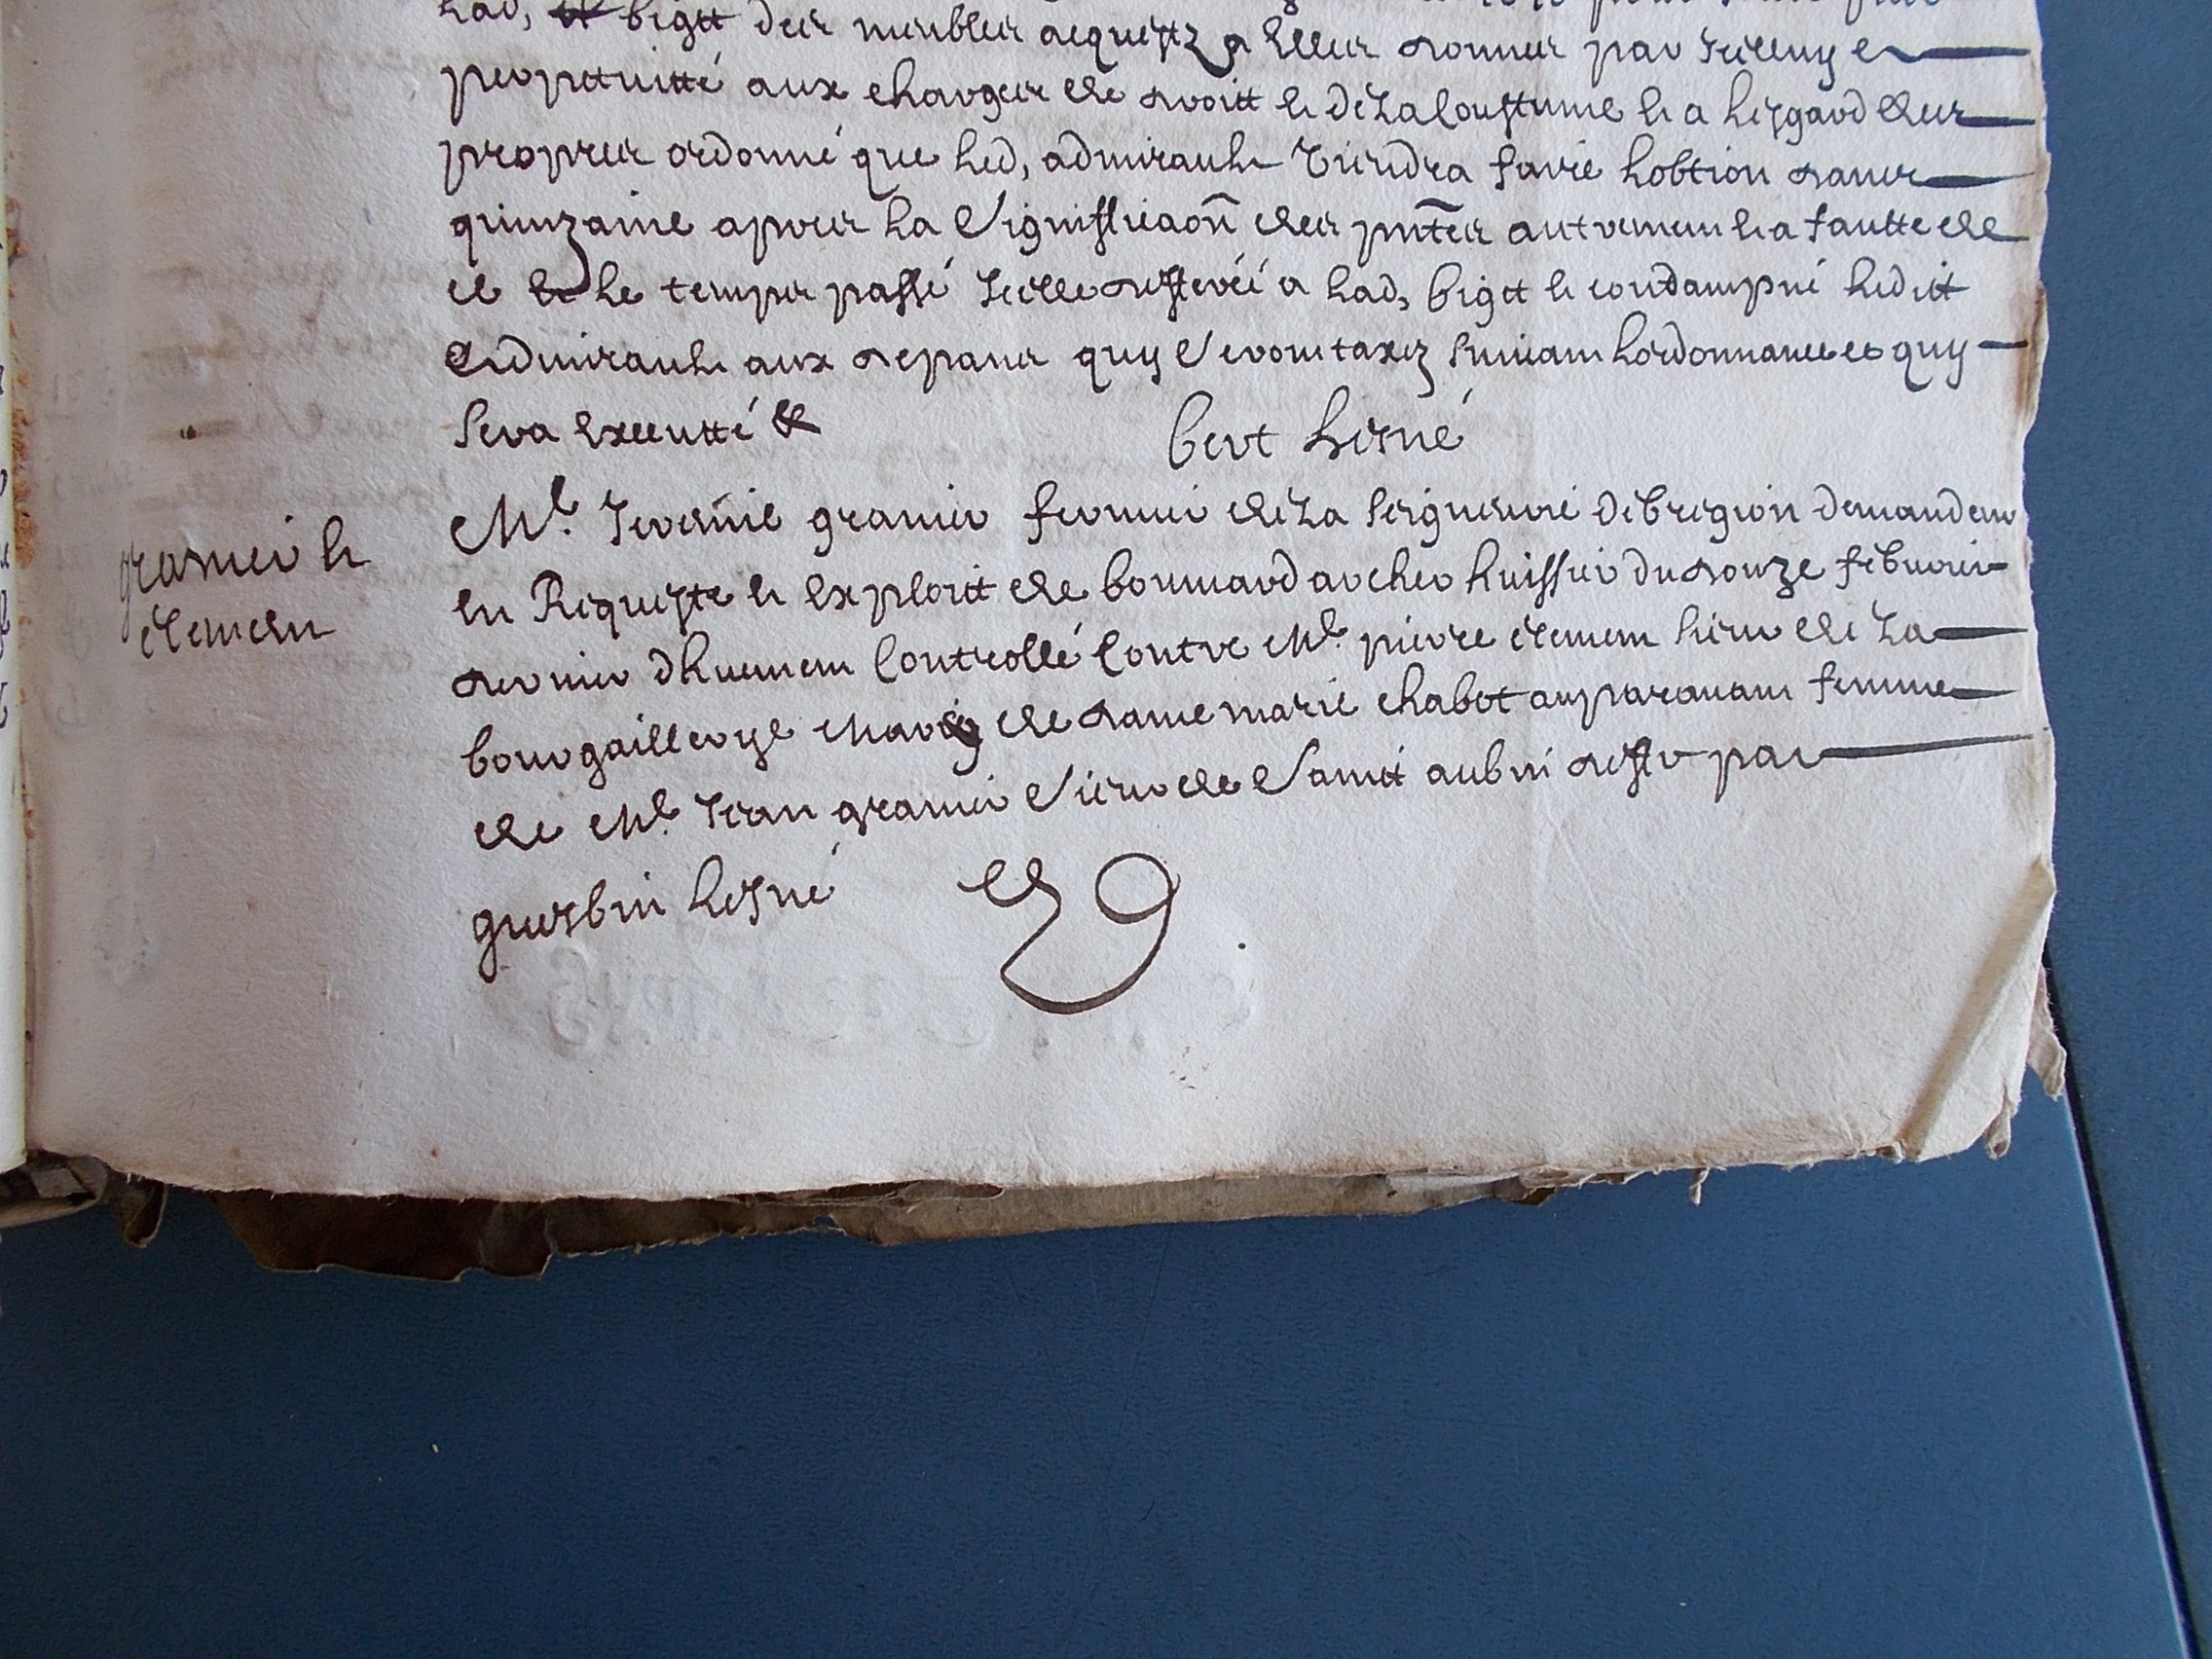 lad, bigot des meubles acquestz a elles donner par icelluy en
propriettté aux charges de droitt et de la coustume et a lesgard des
propres ordonné que led, admirault viendra faire lobtion dans
quinzaine apres la signiffication des pntes autrement et a fautte de
ce le temps passé icelle refferée a lad, bigot et condampné ledit
admirault aux despans quy seront taxez suivant lordonnance ce quy
sera executté &
bert lesné
Me. Jeremie granier fermier de la seigneurie de bregion demandeur
en Requeste et exploit de bonnard archer huissier du douze febvrier
dernier dhuement controllé contre Me. pierre clement sieur de la
bourgaillerye mary de dame marie chabot auparavant femme
de Me. Jean granier sieur de Saint aubin deffr par
guesbin lesné
granier et
clement